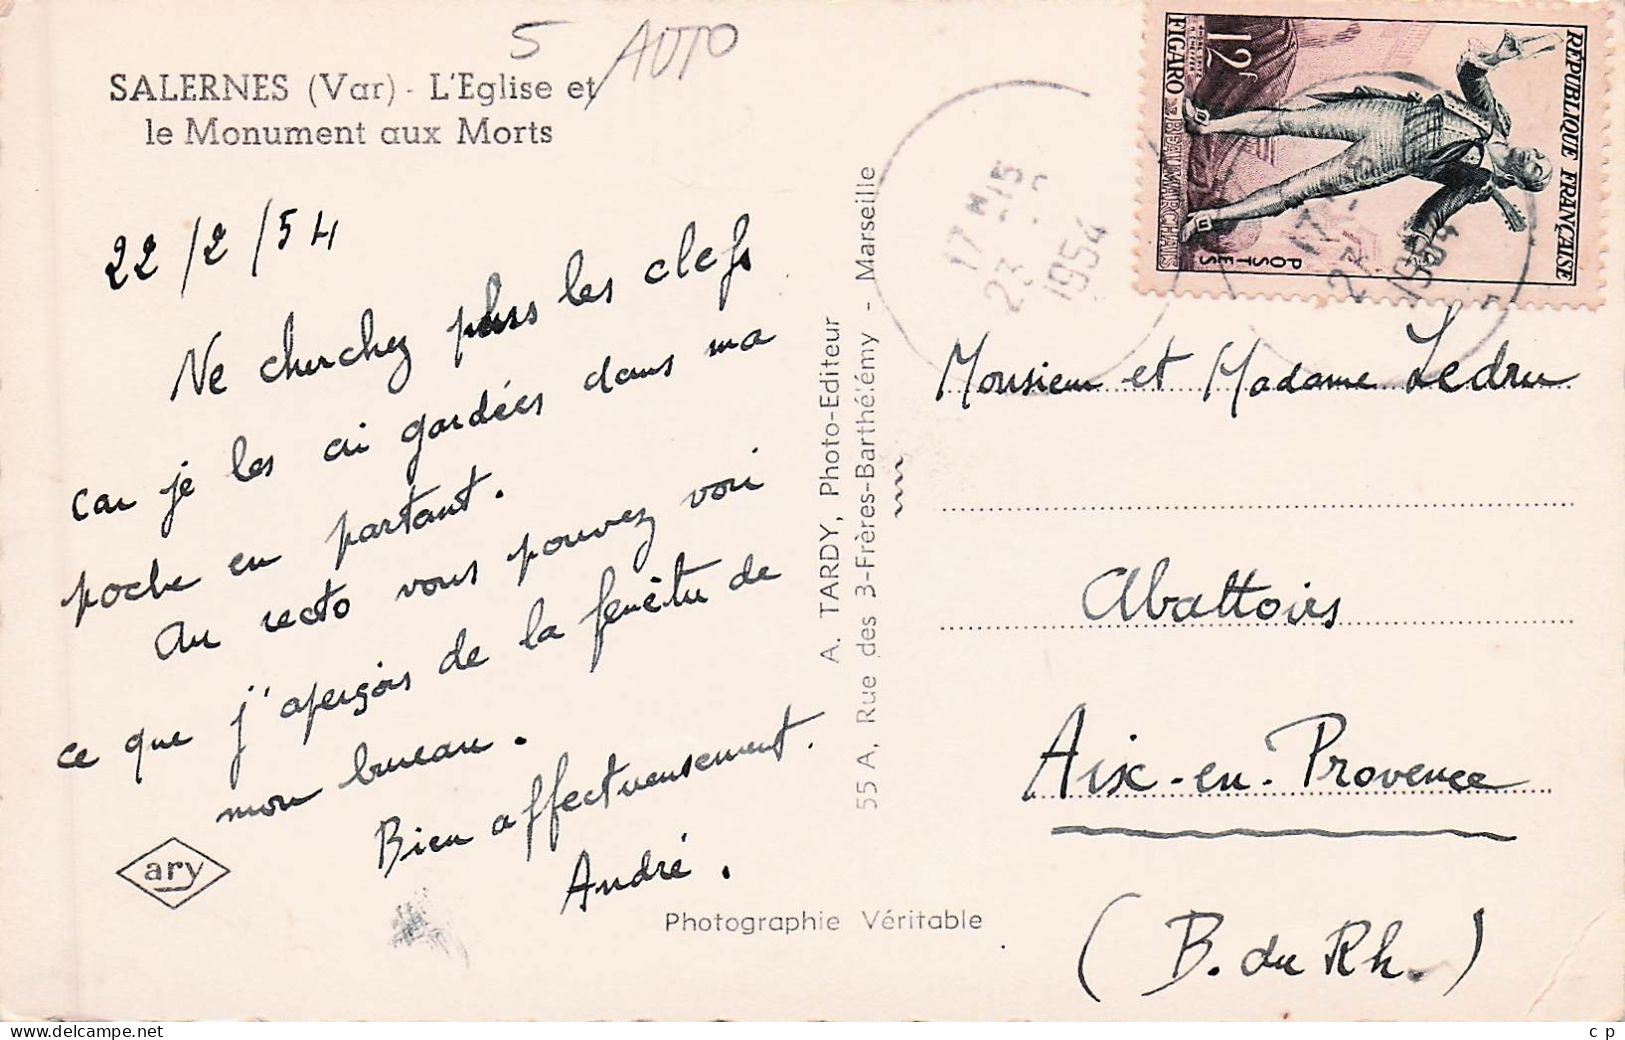 5 AUTO
SALERNES (Var) - L'Eglise et
le Monument aux Morts
22/2/54
Ne cherchez plus les clefs
car je les ai gardées dans ma
poche en partant.
Au recto vous pouvez voir
ce que j'aperçois de la fenêtre de
mon bureau.
Bien affectueusement.
André.
ary
Photographie Véritable
A. TARDY, Photo-Editeur
55 A, Rue des 3-Frères-Barthélémy - Marseille
17 H 15
23
1954
REPUBLIQUE FRANÇAISE
12F
FIGARO
BEAUMARCHAIS
POSTES
17
23
1954
Monsieur et Madame Ledru
Abattoirs
Aix-en-Provence
(B. du Rh.)
c p